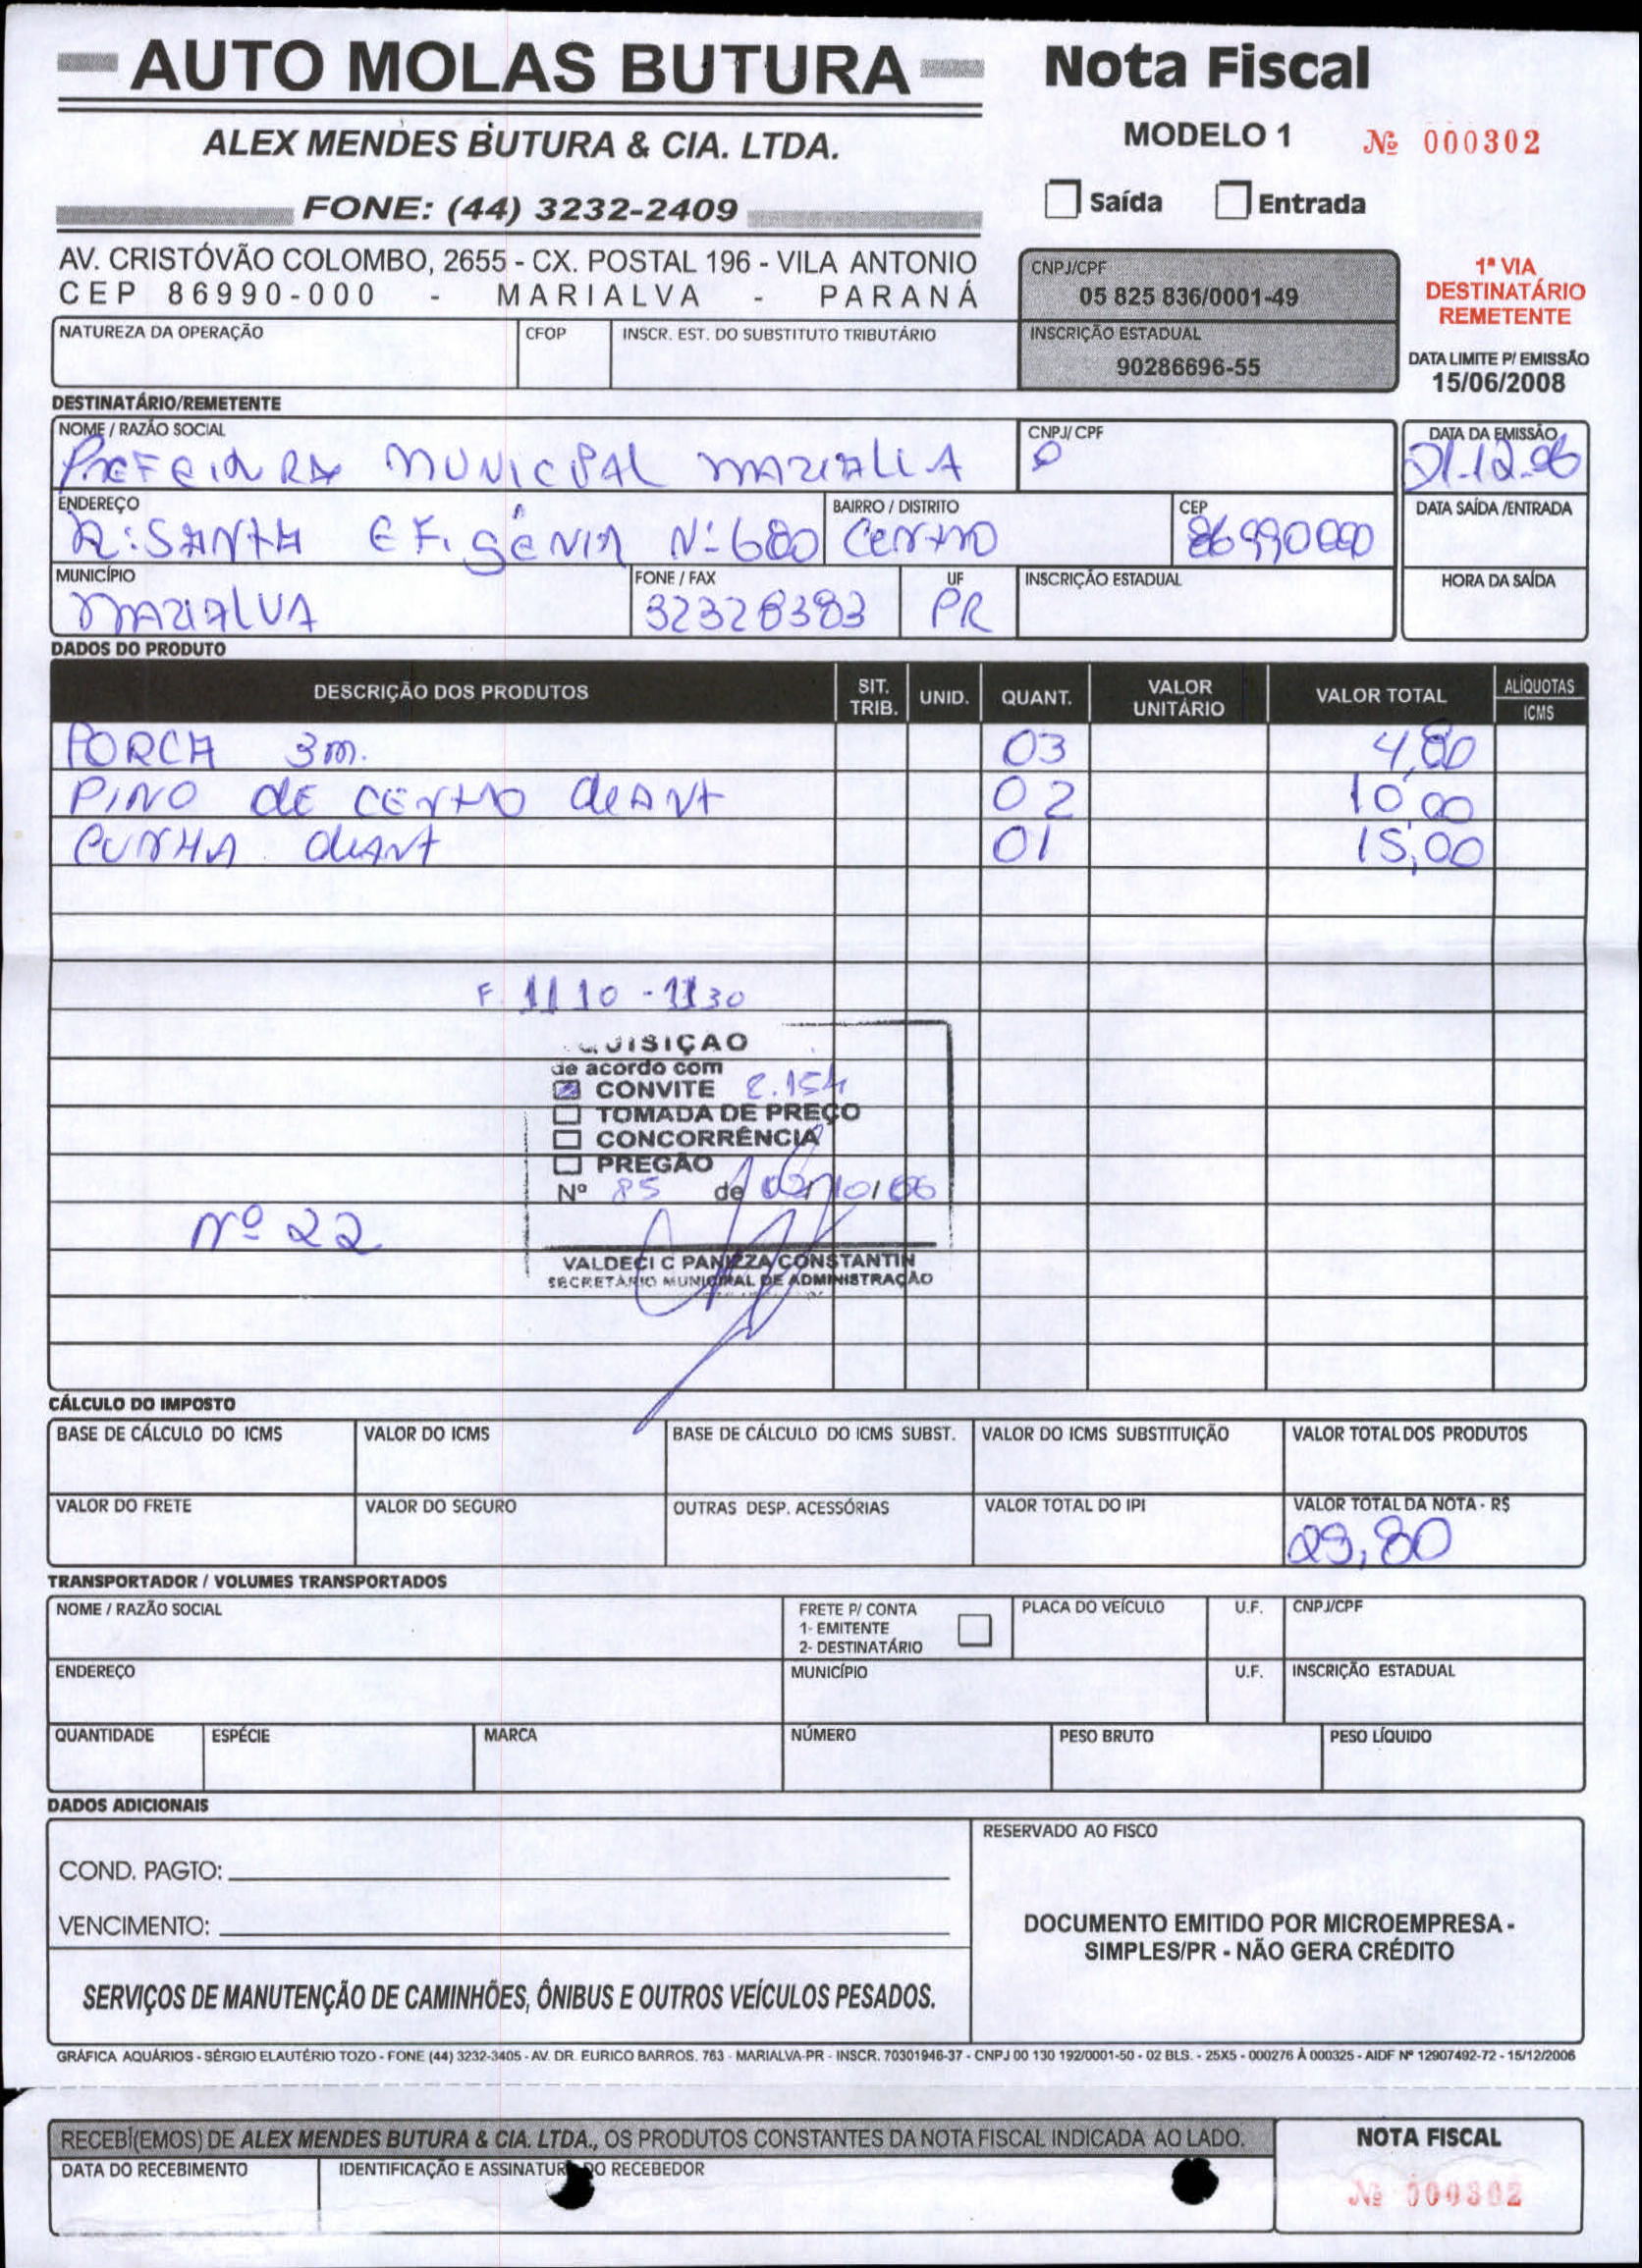 AUTO MOLAS BUTURA
ALEX MENDES BUTURA & CIA. LTDA.
FONE: (44) 3232-2409
AV. CRISTÓVÃO COLOMBO, 2655 - CX. POSTAL 196 - VILA ANTONIO
CEP 86990-000 - MARIALVA - PARANÁ
Nota Fiscal
MODELO 1 Nº 000302
Saída Entrada
CNPJ/CPF
05 825 836/0001-49
INSCRIÇÃO ESTADUAL
90286696-55
1ª VIA
DESTINATÁRIO
REMETENTE
DATA LIMITE P/ EMISSÃO
15/06/2008
NATUREZA DA OPERAÇÃO CFOP INSCR. EST. DO SUBSTITUTO TRIBUTÁRIO
DESTINATÁRIO/REMETENTE
NOME / RAZÃO SOCIAL CNPJ/ CPF DATA DA EMISSÃO
MUNICIPAL 12.06
ENDEREÇO BAIRRO / DISTRITO CEP DATA SAÍDA /ENTRADA
R: SANTA EFIGÊNIA Nº 680 Centro 86990000
MUNICÍPIO FONE / FAX UF INSCRIÇÃO ESTADUAL HORA DA SAÍDA
MARIALVA 32328383 PR
DADOS DO PRODUTO
DESCRIÇÃO DOS PRODUTOS SIT. TRIB. UNID. QUANT. VALOR UNITÁRIO VALOR TOTAL ALÍQUOTAS ICMS
PORCA 3m. 03 4,80
PINO dE CENTRO diANT 02 10,00
CUNHA diANT 01 15,00
F. 1110 - 1130
QUISIÇAO
de acordo com
CONVITE 2.154
TOMADA DE PREÇO
CONCORRÊNCIA
PREGÃO
Nº 85 de /10/06
nº 22
VALDECI C PANIZZA CONSTANTIN
SECRETARIO MUNICIPAL DE ADMINISTRAÇÃO
CÁLCULO DO IMPOSTO
BASE DE CÁLCULO DO ICMS VALOR DO ICMS BASE DE CÁLCULO DO ICMS SUBST. VALOR DO ICMS SUBSTITUIÇÃO VALOR TOTAL DOS PRODUTOS
VALOR DO FRETE VALOR DO SEGURO OUTRAS DESP. ACESSÓRIAS VALOR TOTAL DO IPI VALOR TOTAL DA NOTA - R$
29,80
TRANSPORTADOR / VOLUMES TRANSPORTADOS
NOME / RAZÃO SOCIAL FRETE P/ CONTA PLACA DO VEÍCULO U.F. CNPJ/CPF
1- EMITENTE
2- DESTINATÁRIO
ENDEREÇO MUNICÍPIO U.F. INSCRIÇÃO ESTADUAL
QUANTIDADE ESPÉCIE MARCA NÚMERO PESO BRUTO PESO LÍQUIDO
DADOS ADICIONAIS
COND. PAGTO:
VENCIMENTO:
SERVIÇOS DE MANUTENÇÃO DE CAMINHÕES, ÔNIBUS E OUTROS VEÍCULOS PESADOS.
RESERVADO AO FISCO
DOCUMENTO EMITIDO POR MICROEMPRESA -
SIMPLES/PR - NÃO GERA CRÉDITO
GRÁFICA AQUÁRIOS - SÉRGIO ELAUTÉRIO TOZO - FONE (44) 3232-3405 - AV. DR. EURICO BARROS, 763 - MARIALVA-PR - INSCR. 70301946-37 - CNPJ 00 130 192/0001-50 - 02 BLS. - 25X5 - 000276 À 000325 - AIDF Nº 12907492-72 - 15/12/2006
RECEBI(EMOS) DE ALEX MENDES BUTURA & CIA. LTDA., OS PRODUTOS CONSTANTES DA NOTA FISCAL INDICADA AO LADO.
DATA DO RECEBIMENTO IDENTIFICAÇÃO E ASSINATURA DO RECEBEDOR
NOTA FISCAL
Nº 000302